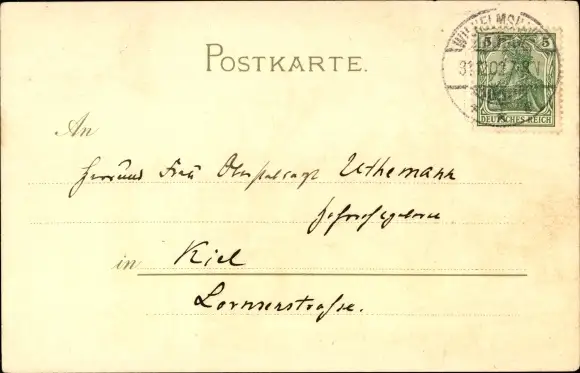 POSTKARTE.
WILHELMSHAVEN
5 5
31.12.02. 7-8 N
DEUTSCHES REICH
An
Herrn und Frau Oberstabsarzt Uthemann
Hochwohlgeboren
in Kiel
Lornsenstraße.